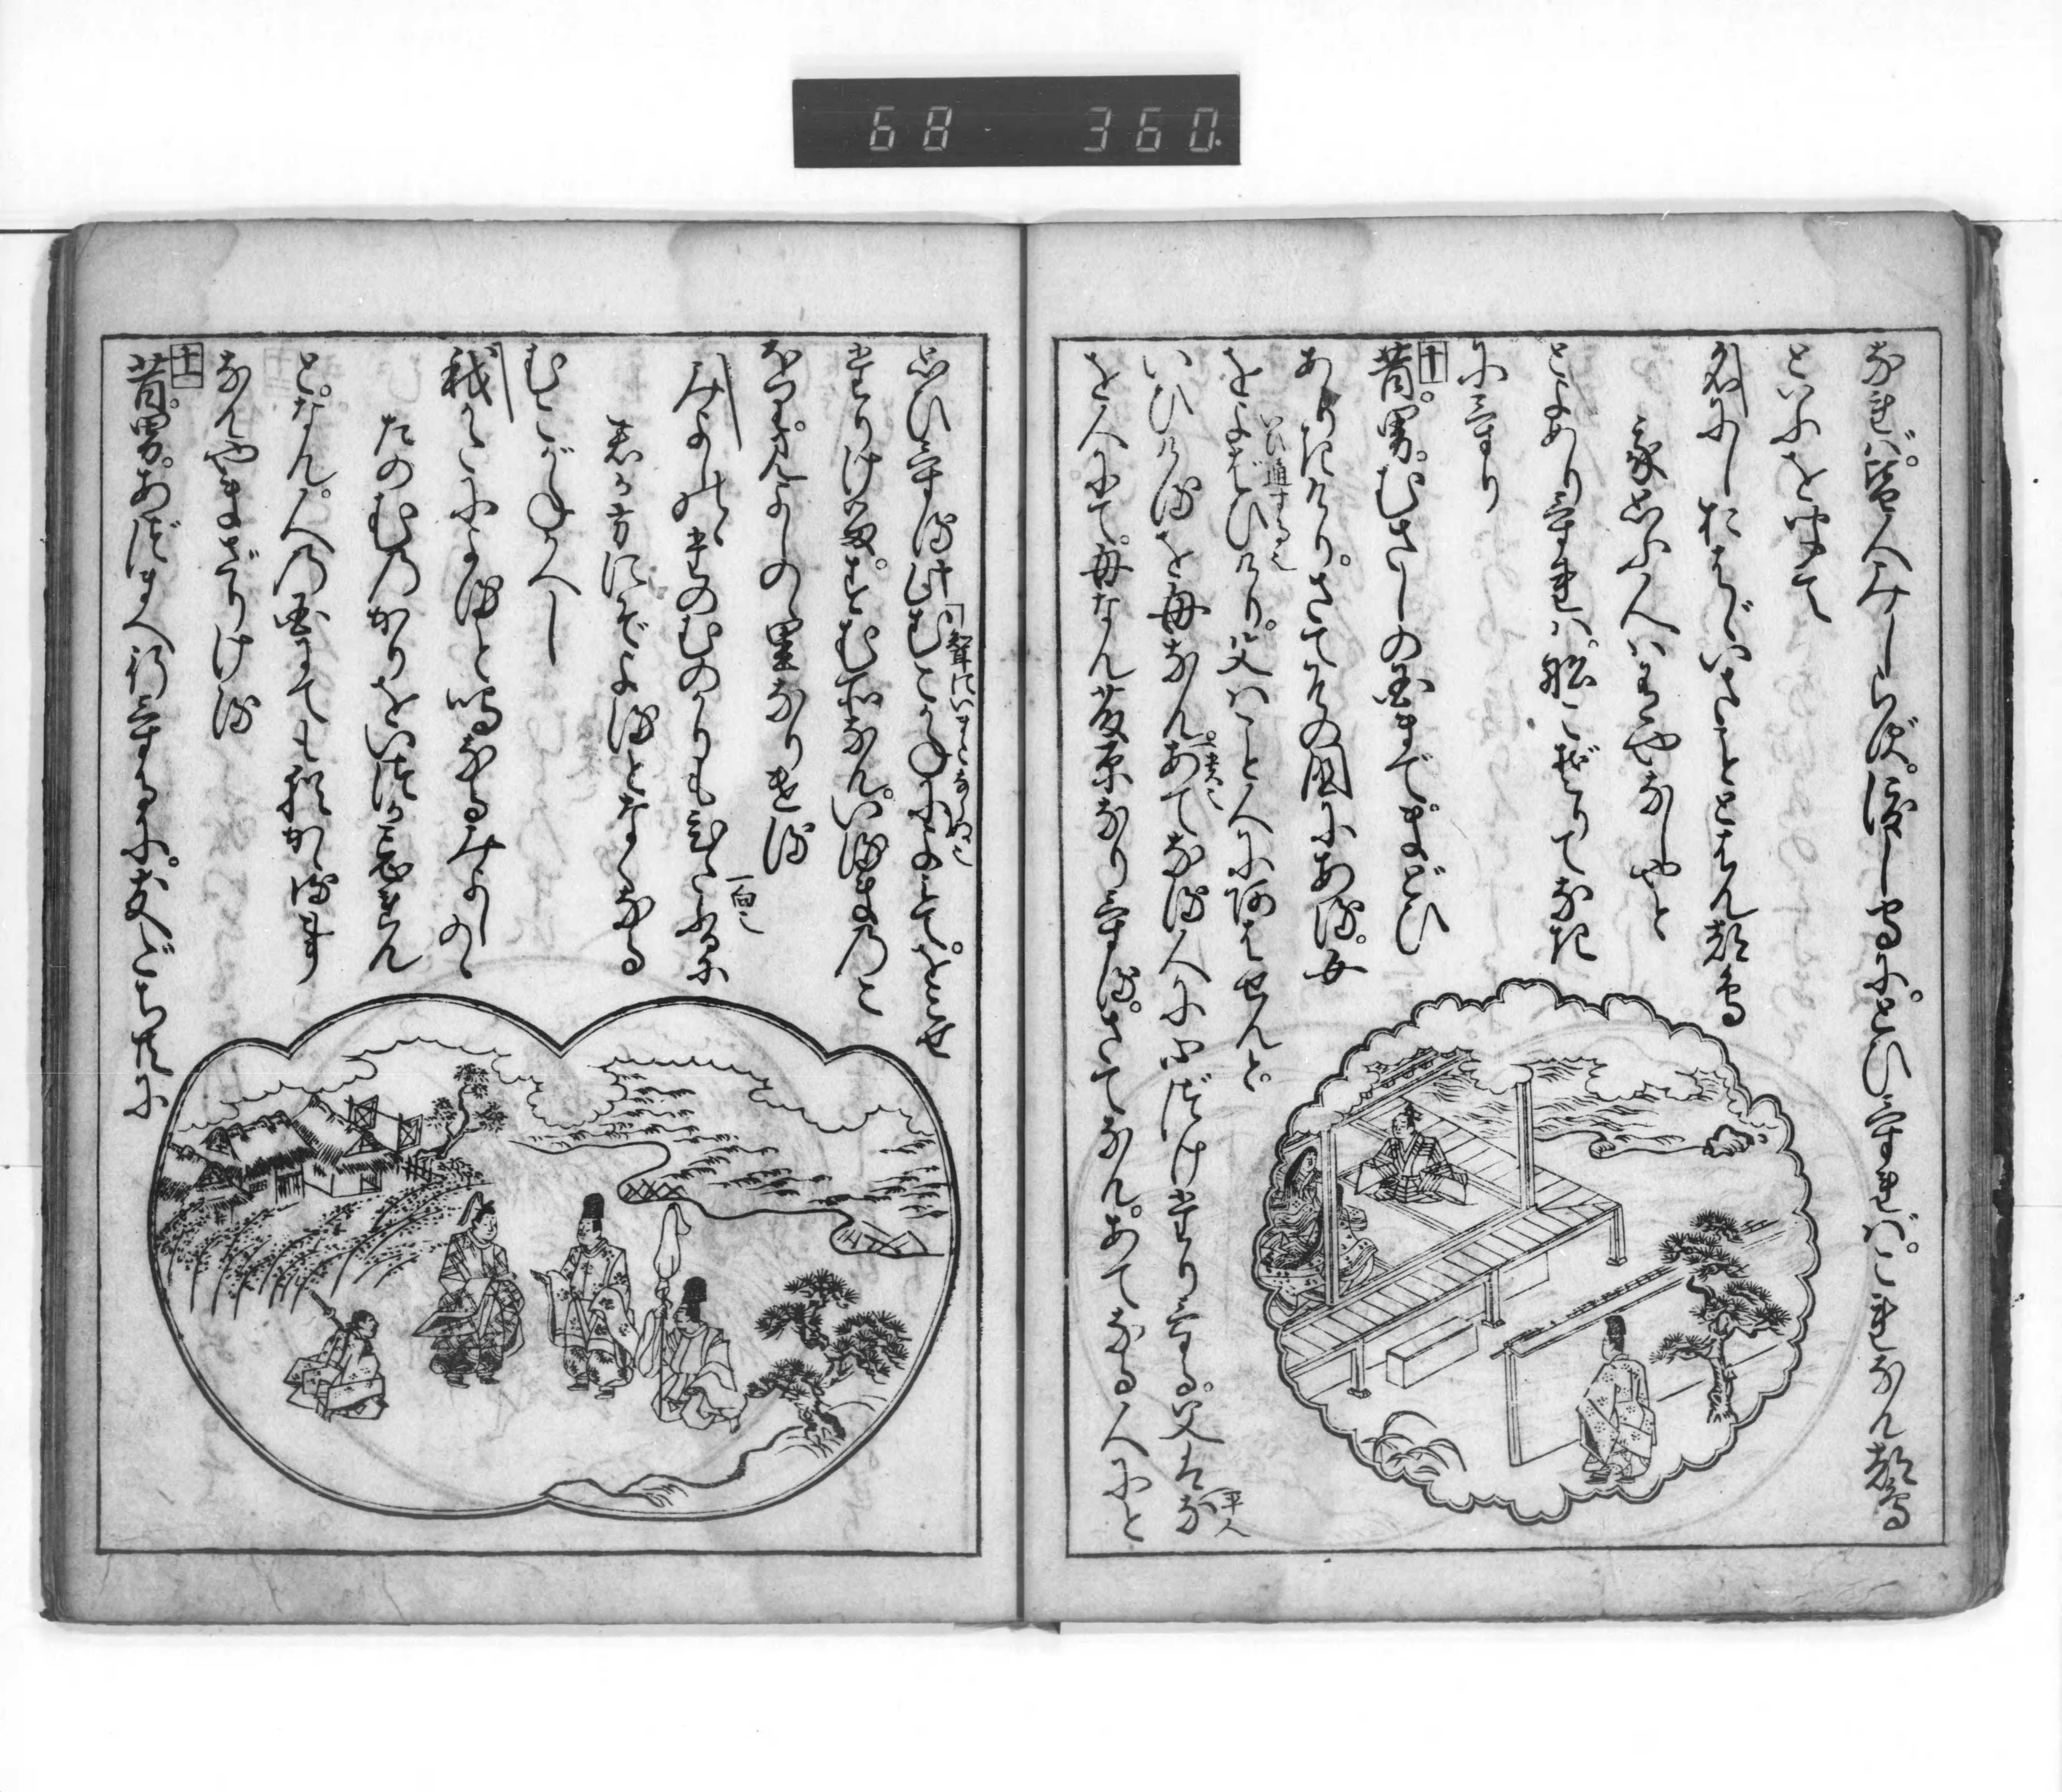 68 360.
なれば。皆人みしらず。渡しもりに。とひければ。これなん都鳥
といふを聞て
名にしおはゞいざことゝはん都鳥
我思ふ人はありやなしやと
とよめりければ。船こぞりてなき
にけり
十
昔。男。むさしの国まで。まどひ
ありきけり。さてその国にある。女
いひ通する也
をよばひけり。父はこと人にあはせんと。
いひけるを母なん
あてなる人に心づけたりける。父はなほ
平人
を人にて。母なん藤原なりける。さてなん。あてなる人にと
思ひける此むこがねによみて。をこせ
たりける。すむ所なん。いるまのこ
ほり。みよしのゝ里なりける
みよしのゝたのむのかりもひたふるに
一向也
君が方にぞよるとなくなる
むこがねかへし
我かたによるとなくなるみよしのゝ
たのむのかりをいつか忘れん
と。なん。人の国にても猶かゝる事
なんやまざりける
十一
昔。男。あづまへ行けるに。友だちどもに